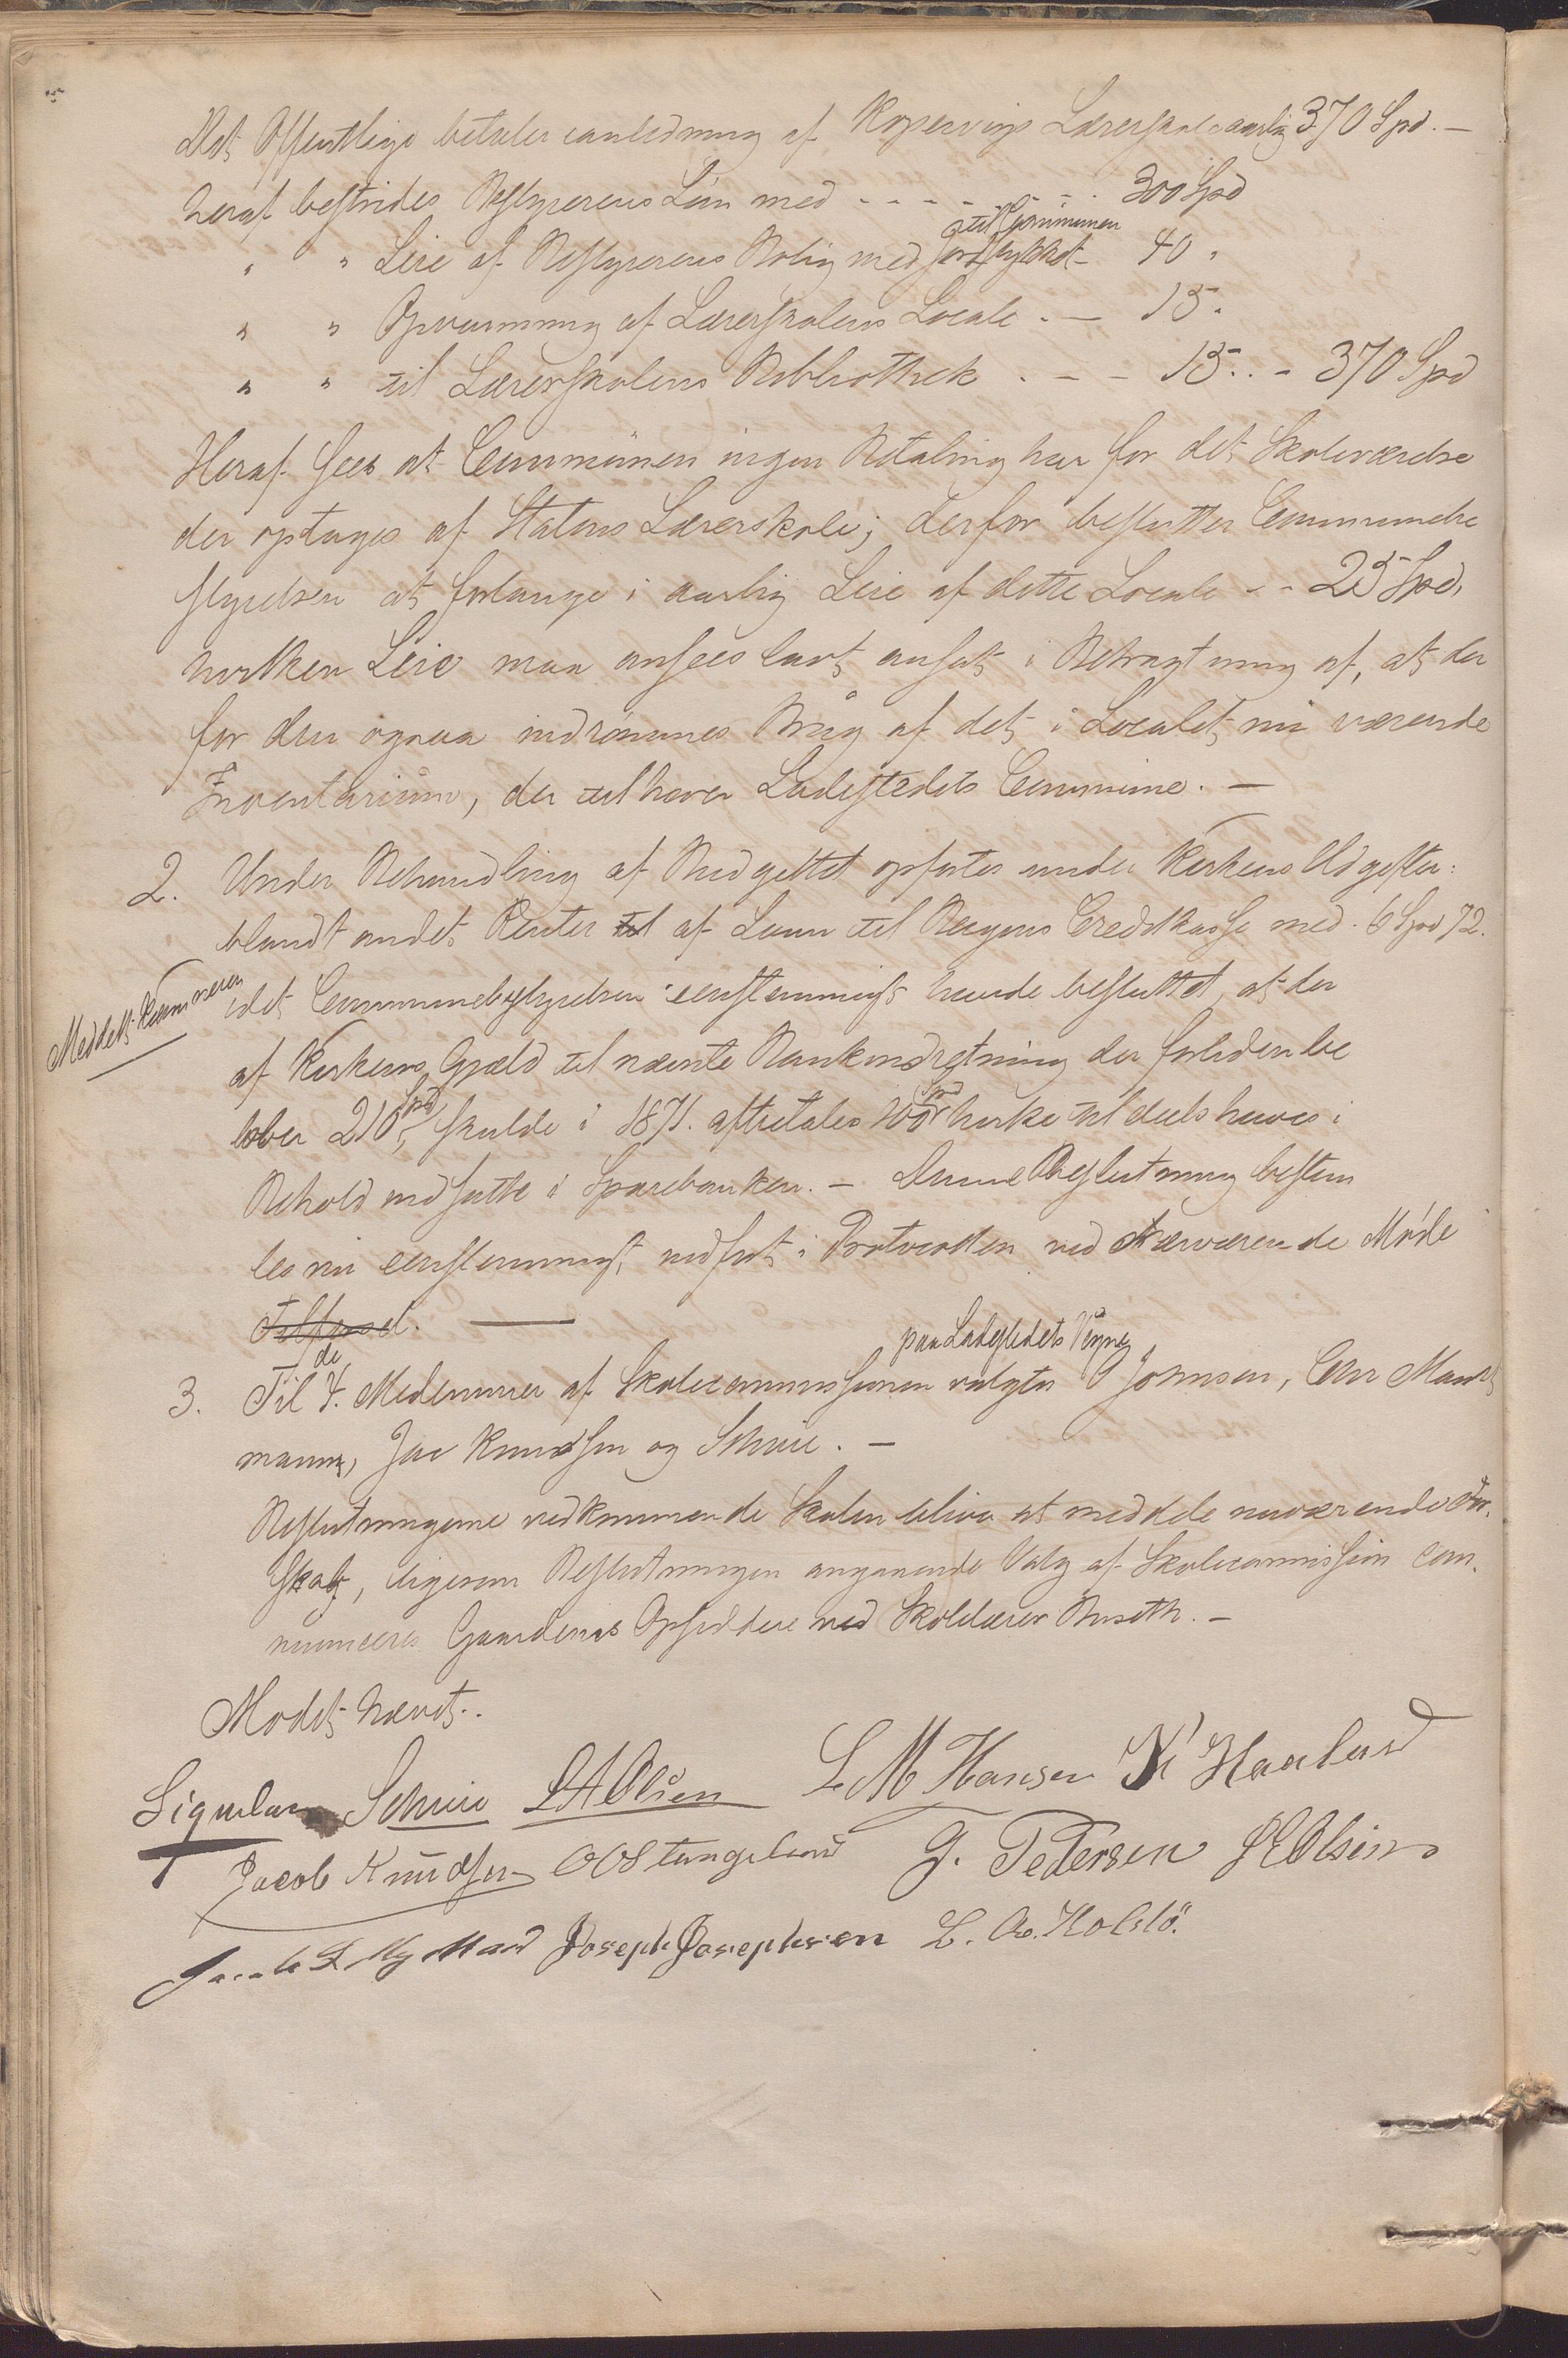 Det Offentlige betaler i anledning af Kopervigs Lærerskole aarlig 370 Spd. —
heraf bestrides Bestyrerens Løn med - - - - - - 300 Spd
" " Leie af Bestyrerens Bolig med Jordstykket - 40 "
til Communen
" " Opvarmning af Lærerskolens Locale . — 15.
" " til Lærerskolens Bibliothek . - - 15. . - 370 Spd
Heraf sees at Communen ingen Betaling har for det Skoleværelse
der optages af Statens Lærerskole; derfor beslutter Communebe
styrelsen at forlange i aarlig Leie af dette Locale - - 25 Spd,
hvilken Leie maa ansees lavt ansat i Betragtning af, at der
for den ogsaa indrømmes Brug af det i Localet nu værende
Inventarium, der tilhører Ladestedets Commune. —
2. Under Behandling af Budgettet opførtes under Kirkens Udgifter:
blandt andet Renter til af Laan til Bergens Creditkasse med. 6 Spd 72.
Meddelt Kæmneren
idet Communebestyrelsen eenstemmigt havde besluttet at der
af Kirkens Gjæld til nævnte Bankindretning der forhen be
løber 210 Spd, skulde i 1871. afbetales 100 Spd hvilke til deels haves i
Behold indsatte i Sparebanken. — Denne Beslutning bestem
tes nu eenstemmigt indført i Protocollen ved nærværende Møde
Tilført.
3. Til de 4. Medlemmer af Skolecommissionen valgtes paa Ladestedets Vegne Johnsen, Chr Mands
mann, Jac Knudsen og Schiie. —
Beslutningerne vedkommende Skolen bliver at meddele nuværende For-
skab, ligesom Beslutningen angaaende Valg af Skolecommission com-
municeres Gaardenes Opsiddere ved Skolelærer Buseth. —
Mødet hævet.
Schiie L A Olsen L M Hansen K Haaland
Jacob Knudsen O O Stangeland J. Petersen H Olsen
Joseph Josephsen L. A. Holstø.